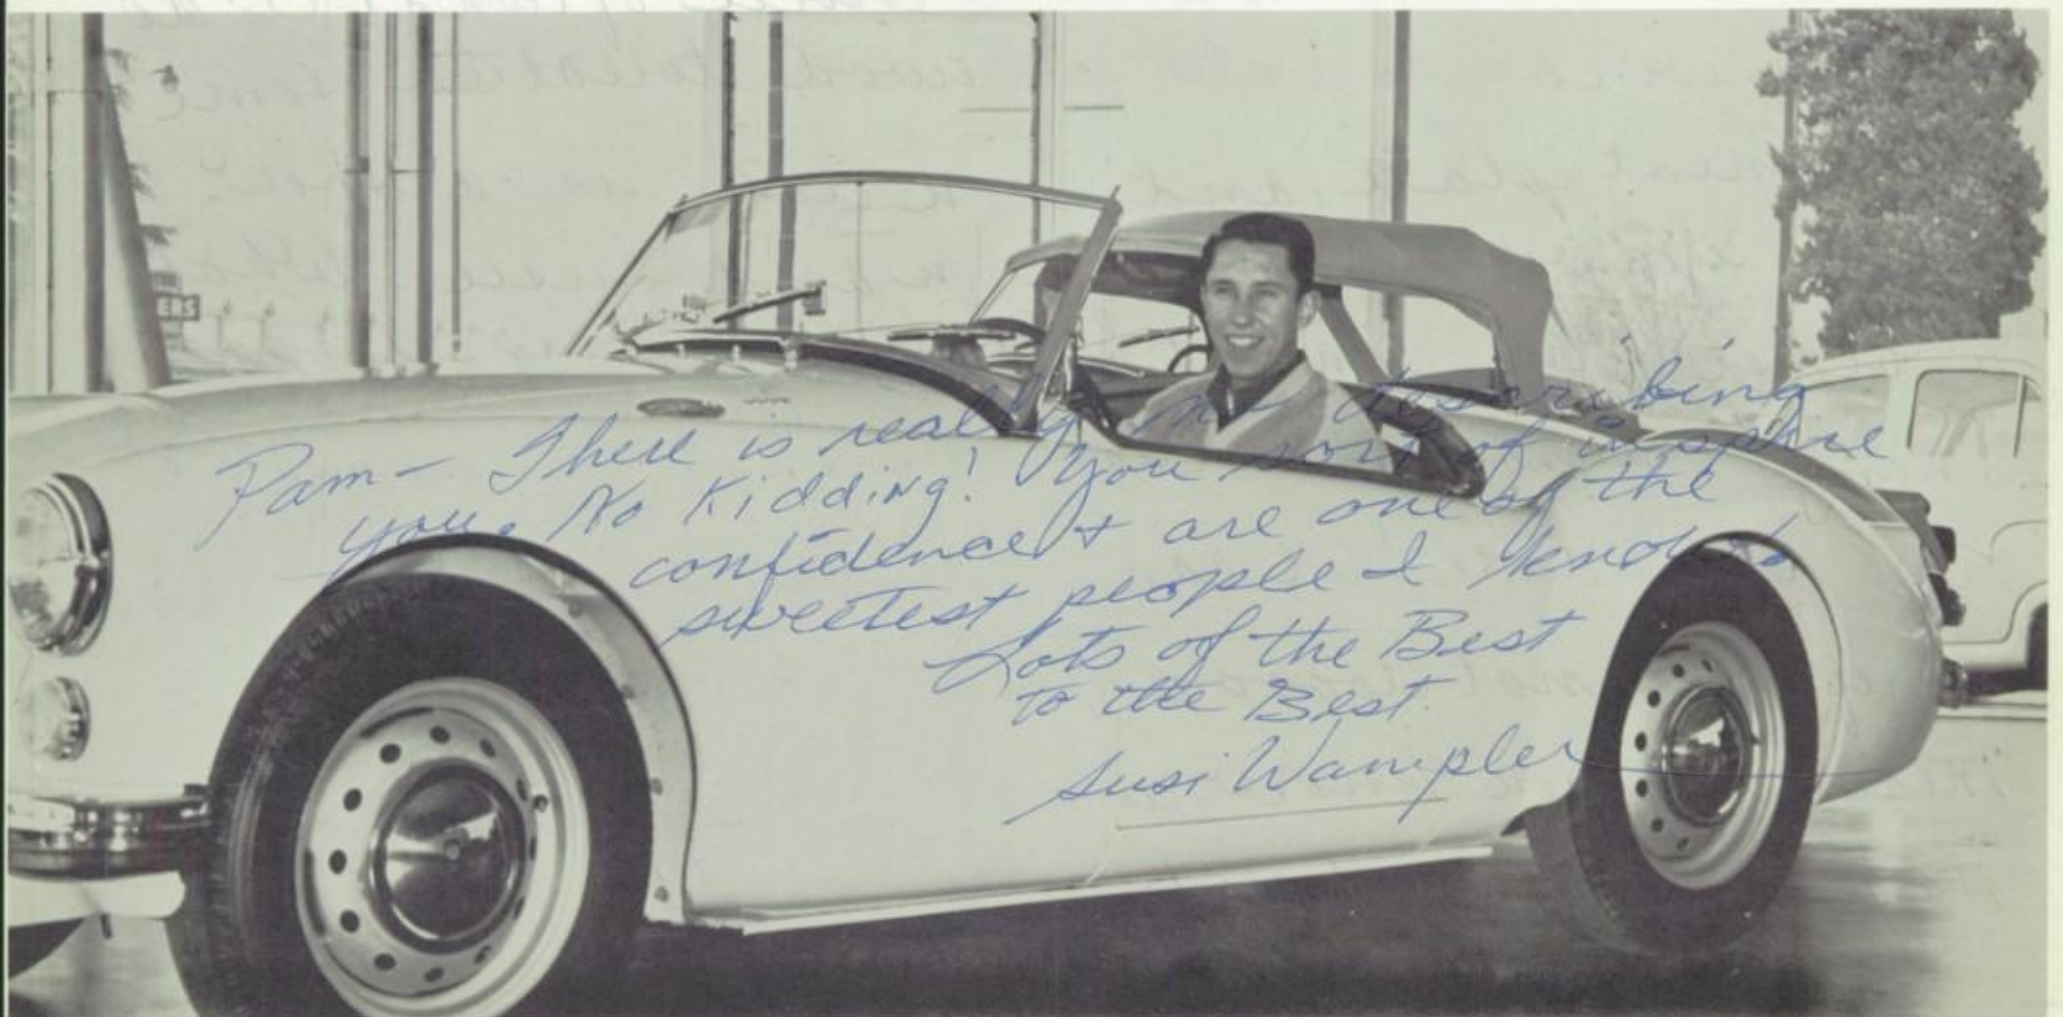 ERS
Pam - There is really no describing
you. No Kidding! You sort of inspire
confidence & are one of the
sweetest people I know.
Lots of the Best
to the Best.
Susi Wampler